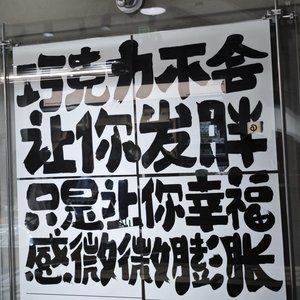 巧克力不会
让你发胖
只是让你幸福
感微微膨胀